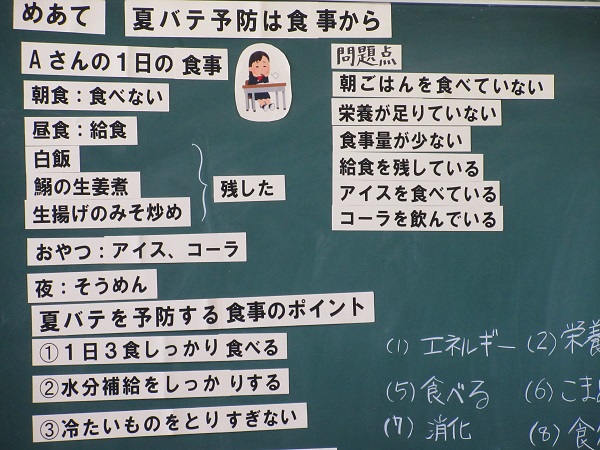 めあて 夏バテ予防は食事から
Aさんの1日の食事
朝食:食べない
昼食:給食
白飯
鰯の生姜煮
生揚げのみそ炒め
残した
おやつ:アイス、コーラ
夜:そうめん
問題点
朝ごはんを食べていない
栄養が足りていない
食事量が少ない
給食を残している
アイスを食べている
コーラを飲んでいる
夏バテを予防する食事のポイント
①1日3食しっかり食べる
②水分補給をしっかりする
③冷たいものをとりすぎない
(1) エネルギー (2) 栄養
(5) 食べる (6) こま
(7) 消化 (8) 食